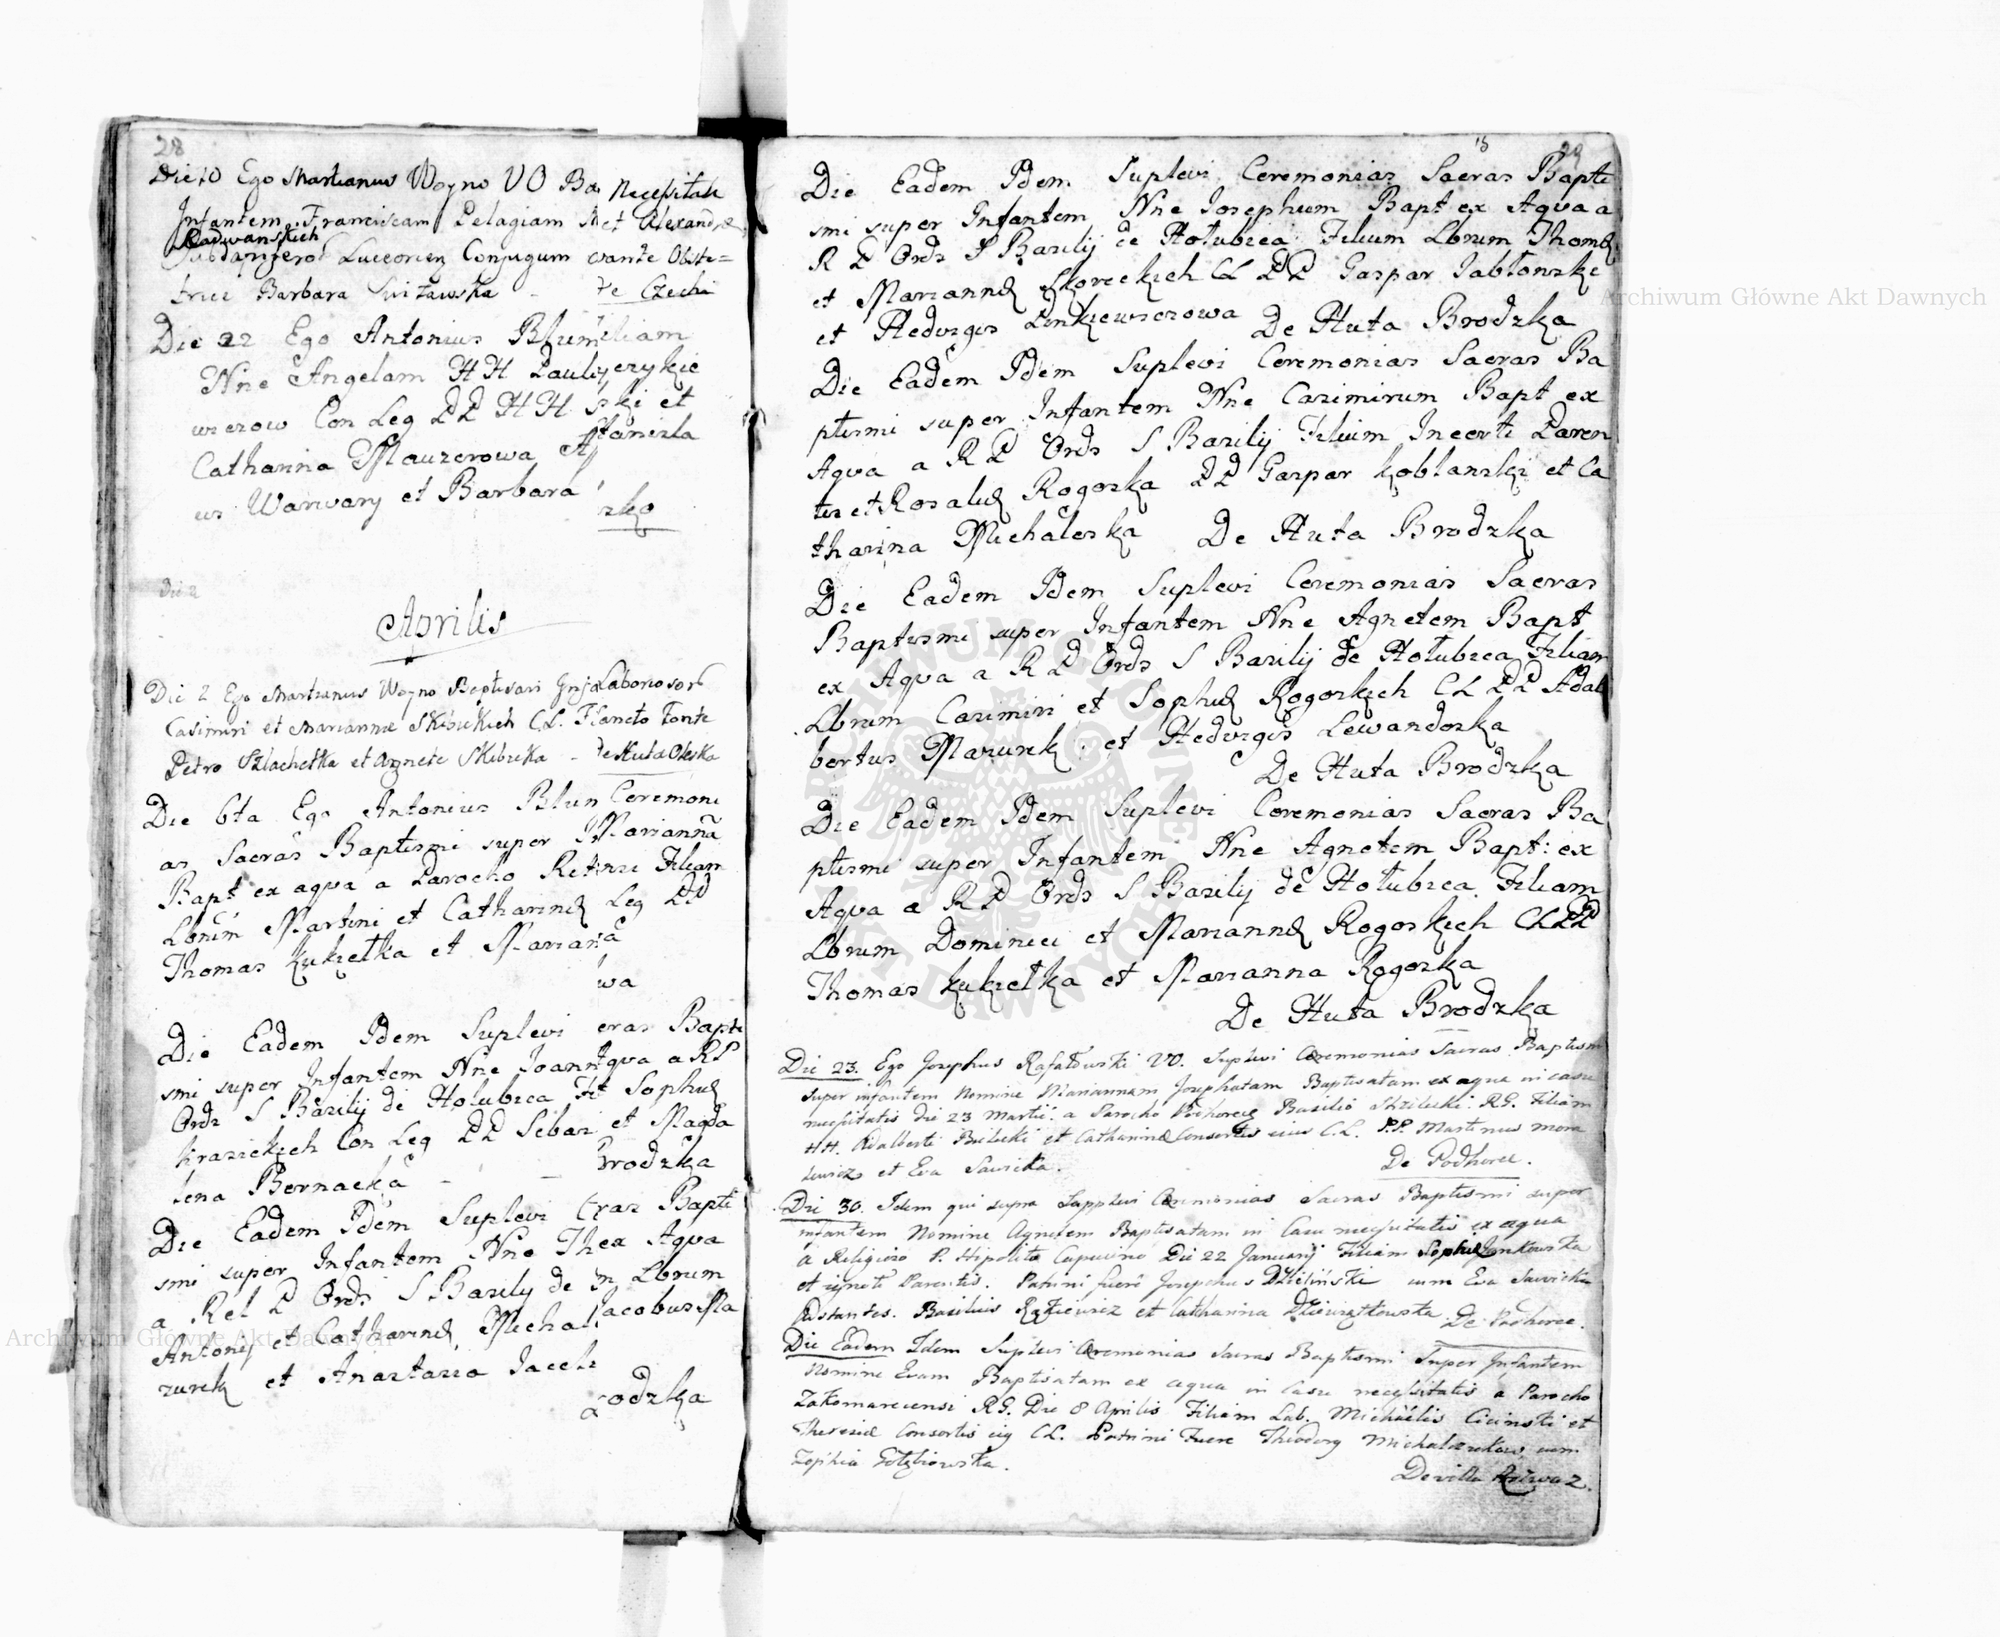 28
Die 10 Ego Martianus Woyno VO Ba Necessitate
Infantem Franciscam Pelagiam et Alexandræ
Radwanskich
Subdapiferor Luceorien Conjugum vante Obste=
trice Barbara - de Czechi
Die 22 Ego Antonius Blum iliam
Nne Angelam HH Pauli
Con Leg PP HH ski et
Catharina Mauzerowa Stanisla
us Warwary et Barbara
sko
Die 2
Aprilis
Die 2 Ego Martianus Woyno Baptisavi Laboriosor
Casimiri et Mariannæ Skibickich CL. Flancto Fonte
Petro Szlachetka et Agnete Skibicka - de Huta Oleska
Die 6ta Ego Antonius Blum Ceremoni
as Sacras Baptismi super Mariannã
Bapt ex aqva a Parocho Filiam
Lbrum Martini et Catharinæ Leg PP
Thomas Kukiełka et Mariana
wa
Die Eadem Idem Suplevi cras Bapti
smi super Infantem Nne Joann Aqva a RP
Ords S Basilij de Holubica et Sophiæ
Krasickich Con Leg PP Sebas et Magda
lena Bernacka - - Brodzka
Die Eadem Idem Suplevi cras Bapti
smi super Infantem Nne The ex Aqva
a Rel P Ords S Basilij de m Lbrum
Antonij et Catharinæ Michal Jacobus Ma
zurek et Anastasia Jaceh
rodzka
15
29
Die Eadem Idem Suplevi Ceremonias Sacras Bapti
smi super Infantem Nne Josephum Bapt ex Aqva a
R P Ords S Basilij de Hołubica Filium Lbrum Thomæ
et Mariannæ Skoreckich CL PP Gaspar Jabłonski
et Hedvigis Linkiewiczowa De Huta Brodzka
Die Eadem Idem Suplevi Ceremonias Sacras Ba
ptismi super Infantem Nne Casimirum Bapt ex
Aqva a R P Ords S Basilij Filium Incerti Paren
tis et Rosaliæ Rogoska PP Gaspar Koblanski et Ca
tharina Michaleska De Huta Brodzka
Die Eadem Idem Suplevi Ceremonias Sacras
Baptismi super Infantem Nne Agnetem Bapt
ex Aqva a R P Ords S Basilij de Hołubica Filiam
Lbrum Casimiri et Sophiæ Rogoskich CL PP Adal
bertus Mazurek et Hedvigis Lewandoska
De Huta Brodzka
Die Eadem Idem Suplevi Ceremonias Sacras Ba
ptismi super Infantem Nne Agnetem Bapt: ex
Aqva a R P Ords S Basilij de Hołubica Filiam
Lbrum Dominici et Mariannæ Rogoskich CL PP
Thomas Kukiełka et Marianna Rogoska
De Huta Brodzka
Die 23. Ego Josephus Rafałowski VO. Suplevi Ceremonias Sacras Baptism
super infantem Nomine Mariannam Josephatam Baptisatam ex aqua in casu
necessitatis die 23 Martii a Parocho Podhorec Basilio R.G. Filiam
HH. Adalberti Bielecki et Catharinæ Consortis eius C.L. P.P. Martinus Mora
wiez et Eva Sawicka.
De Podhorce.
Die 30. Idem qui supra Supplevi Ceremonias Sacras Baptismi super
infantem Nomine Agnetem Baptisatam in Casu necessitatis ex aqua
a Religioso P. Hipolito Capucino Die 22 Januarij Filiam Sophiæ Jankowska
et ignoti Parentis. Patrini fuere Josephus Dzieliński cum Eva Sawicka
Astantes. Basilius et Catharina Dziewiątkowska De Podhorce.
Die Eadem Idem Suplevi Ceremonias Sacras Baptismi Super Infantem
Nomine Evam Baptisatam ex aqua in Casu necessitatis a Parocho
Zakomarcensi R.G. Die 8 Aprilis Filiam Lab. Michaelis Cicinski et
Theresiæ Consortis eig CL. Patrini Fuere Theodorg cum
Zophia Gołębiowska.
De villa
Archiwum Główne Akt Dawnych
Archiwum Główne Akt Dawnych
ARCHIWUM GŁÓWNE AKT DAWNYCH